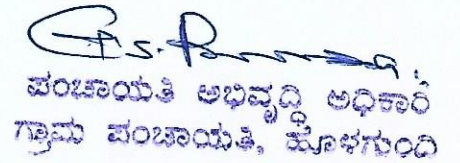 ಪಂಚಾಯತಿ ಅಭಿವೃದ್ಧಿ ಅಧಿಕಾರಿ
ಗ್ರಾಮ ಪಂಚಾಯತಿ, ಹೊಳಗುಂದಿ